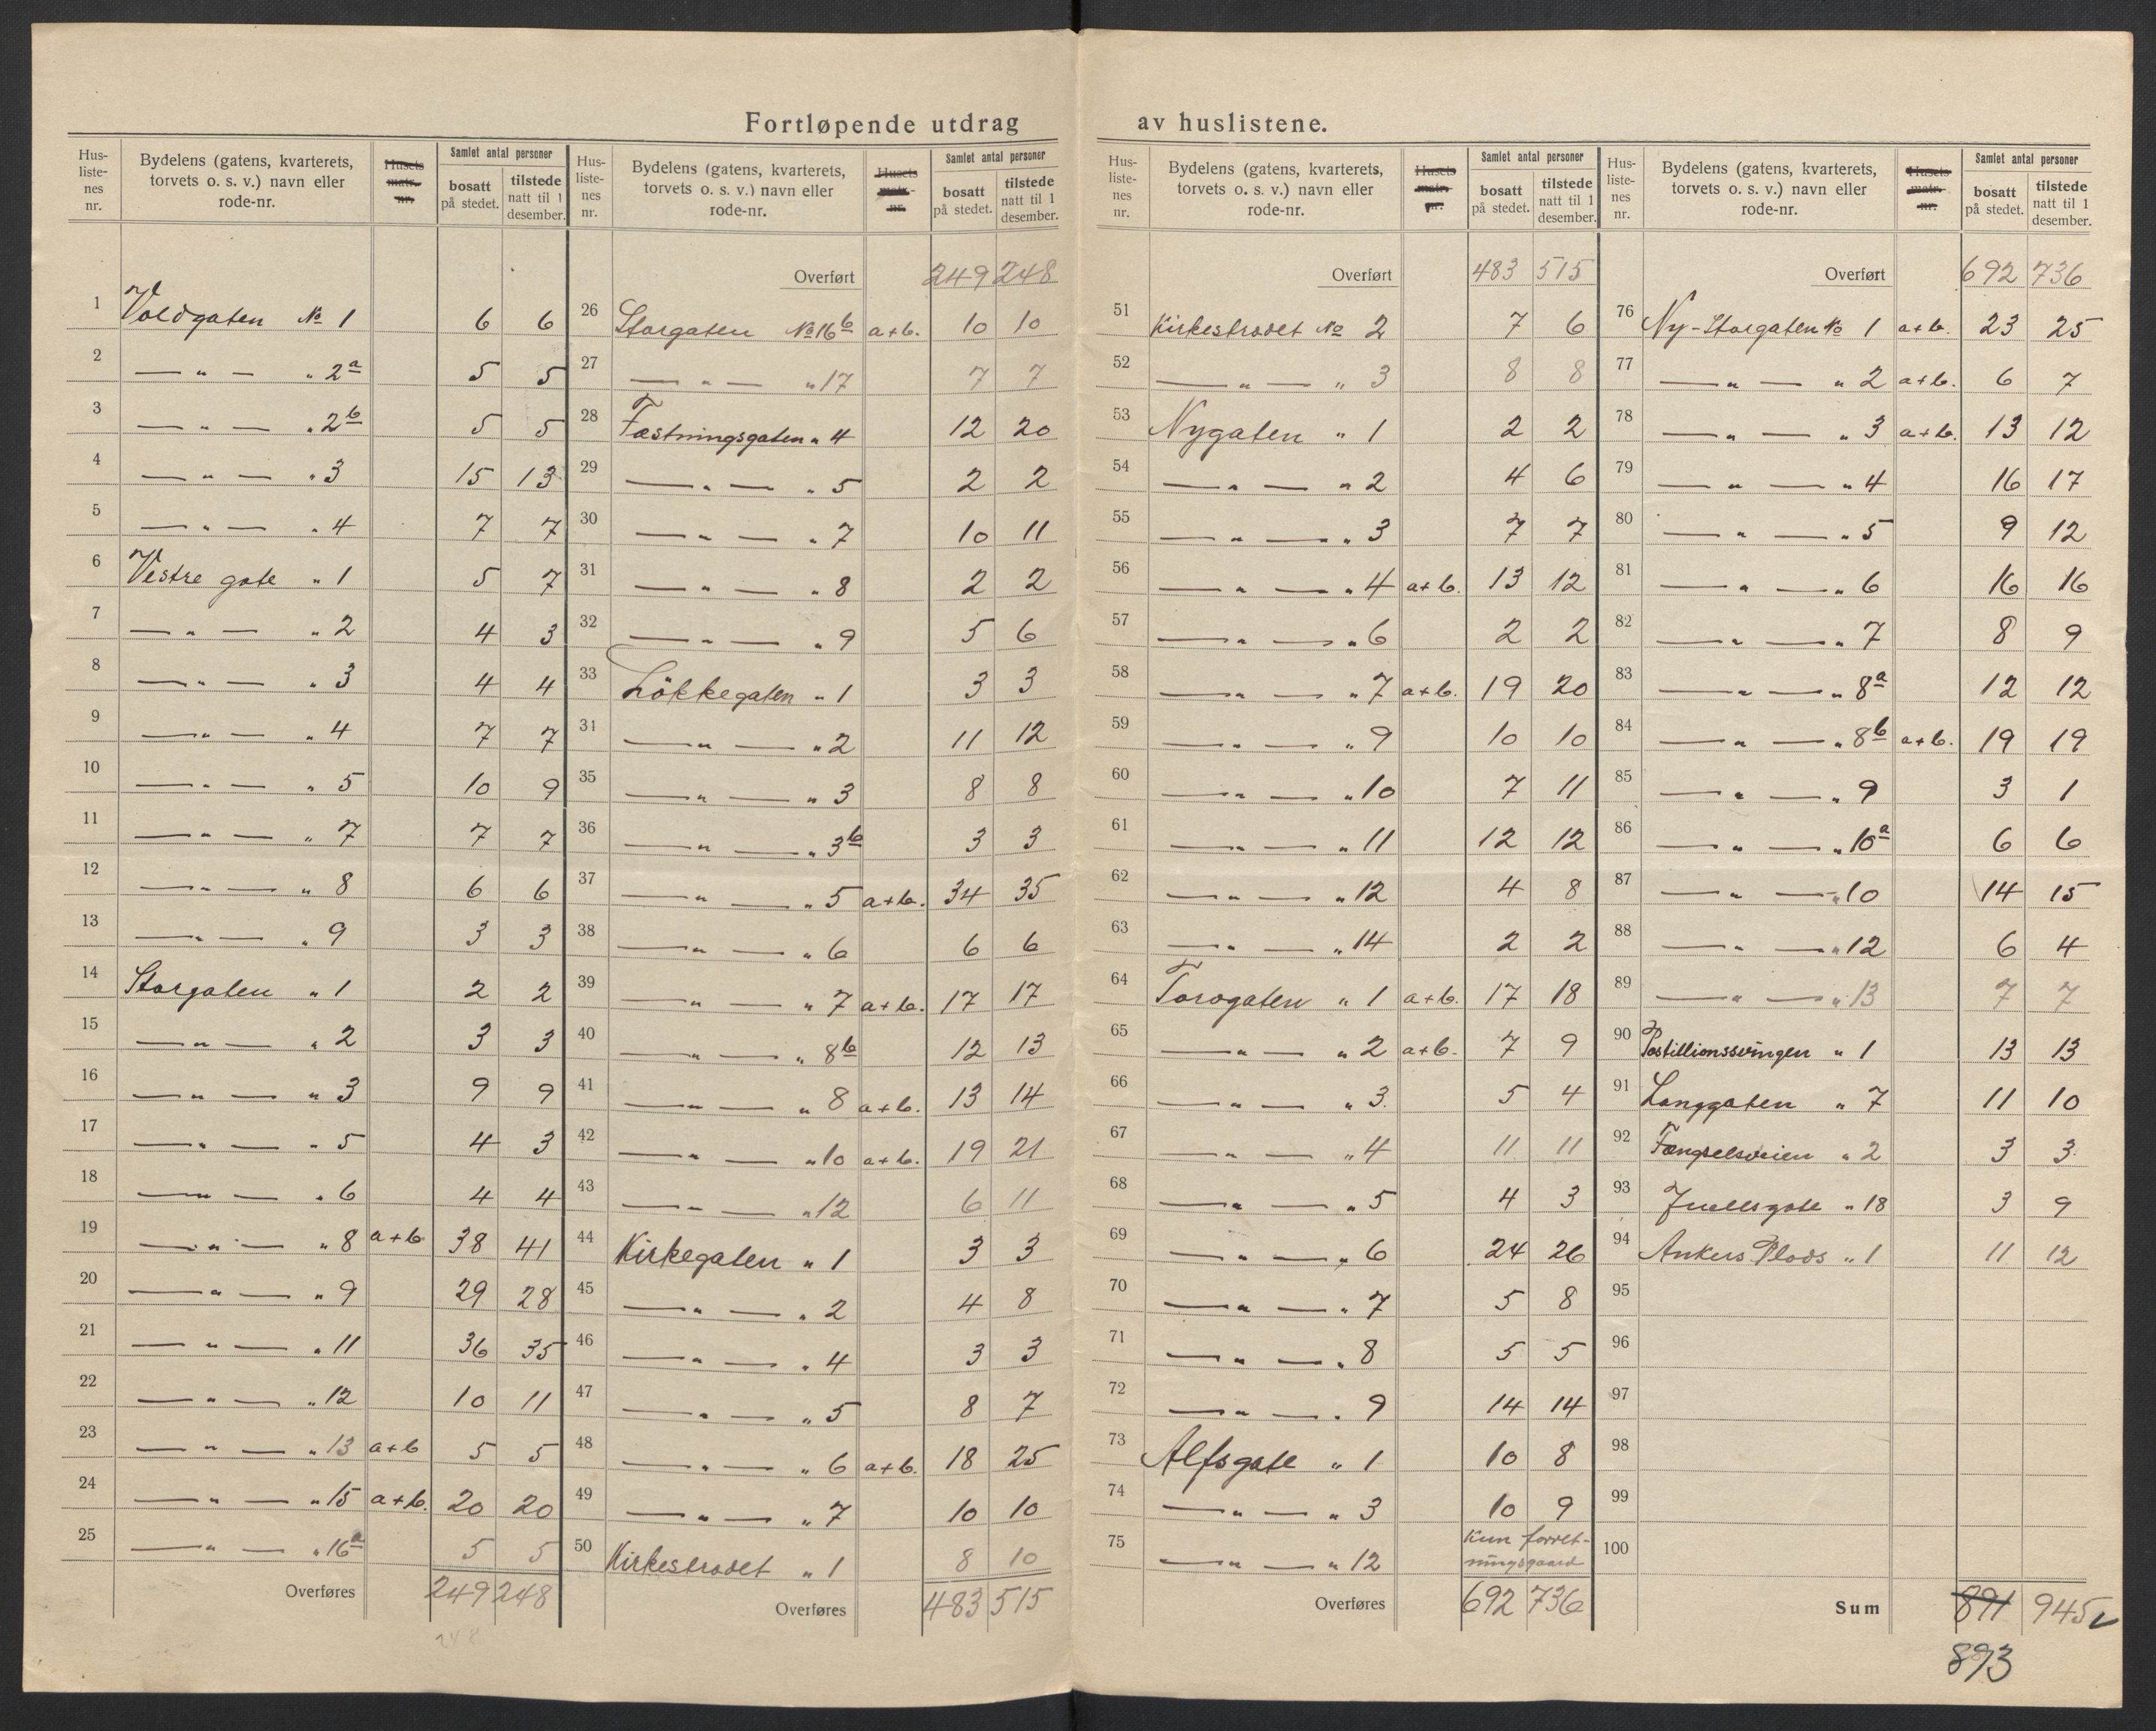 Fortløpende utdrag av huslistene.
Hus-liste-nes nr. | Bydelens (gatens, kvarterets, torvets o. s. v.) navn eller rode-nr. | Husets matr.-nr. | Samlet antal personer bosatt på stedet. | tilstede natt til 1 desember.
1 Voldgaten No 1 6 6
2 — " — " 2a 5 5
3 — " — " 2b 5 5
4 — " — " 3 15 13
5 — " — " 4 7 7
6 Vestre gate " 1 5 7
7 — " — " 2 4 3
8 — " — " 3 4 4
9 — " — " 4 7 7
10 — " — " 5 10 9
11 — " — " 7 7 7
12 — " — " 8 6 6
13 — " — " 9 3 3
14 Storgaten " 1 2 2
15 — " — " 2 3 3
16 — " — " 3 9 9
17 — " — " 5 4 3
18 — " — " 6 4 4
19 — " — " 8 a+b 38 41
20 — " — " 9 29 28
21 — " — " 11 36 35
22 — " — " 12 10 11
23 — " — " 13 a+b 5 5
24 — " — " 15 a+b. 20 20
25 — " — " 16a 5 5
Overføres 249 248
248
Hus-liste-nes nr. | Bydelens (gatens, kvarterets, torvets o. s. v.) navn eller rode-nr. | Husets matr.-nr. | Samlet antal personer bosatt på stedet. | tilstede natt til 1 desember.
Overført 249 248
26 Storgaten No 16b a+b. 10 10
27 — " — " 17 7 7
28 Fæstningsgaten " 4 12 20
29 — " — " 5 2 2
30 — " — " 7 10 11
31 — " — " 8 2 2
32 — " — " 9 5 6
33 Lökkegaten " 1 3 3
34 — " — " 2 11 12
35 — " — " 3 8 8
36 — " — " 3b 3 3
37 — " — " 5 a+b. 34 35
38 — " — " 6 6 6
39 — " — " 7 a+b. 17 17
40 — " — " 8b 12 13
41 — " — " 8 a+b. 13 14
42 — " — " 10 a+b. 19 21
43 — " — " 12 6 11
44 Kirkegaten " 1 3 3
45 — " — " 2 4 8
46 — " — " 4 3 3
47 — " — " 5 8 7
48 — " — " 6 a+b. 18 25
49 — " — " 7 10 10
50 Kirkestrædet " 1 8 10
Overføres 483 515
Hus-liste-nes nr. | Bydelens (gatens, kvarterets, torvets o. s. v.) navn eller rode-nr. | Husets matr.-nr. | Samlet antal personer bosatt på stedet. | tilstede natt til 1 desember.
Overført 483 515
51 Kirkestrædet No 2 7 6
52 — " — " 3 8 8
53 Nygaten " 1 2 2
54 — " — " 2 4 6
55 — " — " 3 7 7
56 — " — " 4 a+b. 13 12
57 — " — " 6 2 2
58 — " — " 7 a+b. 19 20
59 — " — " 9 10 10
60 — " — " 10 7 11
61 — " — " 11 12 12
62 — " — " 12 4 8
63 — " — " 14 2 2
64 Torvgaten " 1 a+b. 17 18
65 — " — " 2 a+b. 7 9
66 — " — " 3. 5 4
67 — " — " 4 11 11
68 — " — " 5 4 3
69 — " — " 6 24 26
70 — " — " 7 5 8
71 — " — " 8 5 5
72 — " — " 9 14 14
73 Alfsgate " 1 10 8
74 — " — " 3 10 9
75 — " — " 12 Kun forret-
ningsgaard
Overføres 692 736
Hus-liste-nes nr. | Bydelens (gatens, kvarterets, torvets o. s. v.) navn eller rode-nr. | Husets matr.-nr. | Samlet antal personer bosatt på stedet. | tilstede natt til 1 desember.
Overført 692 736
76 Ny-Storgaten No 1 a+b. 23 25
77 — " — " 2 a+b. 6 7
78 — " — " 3 a+b. 13 12
79 — " — " 4 16 17
80 — " — " 5 9 12
81 — " — " 6 16 16
82 — " — " 7 8 9
83 — " — " 8a 12 12
84 — " — " 8b a+b. 19 19
85 — " — " 9 3 1
86 — " — " 10a 6 6
87 — " — " 10 14 15
88 — " — " 12 6 4
89 — " — " 13 7 7
90 Postillionssvingen " 1 13 13
91 Langgaten " 7 11 10
92 Fængselsveien " 2 3 3
93 Juellsgate " 18 3 9
94 Ankers Plads " 1 11 12
95
96
97
98
99
100
Sum 891 945
893